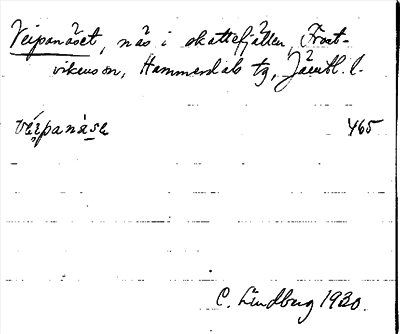 Veipanäset, näs i skattefjällen, Frost-
vikens sn, Hammerdals tg, Jämtl. l.
väi̯panä̀sa 465
C. Lindberg 1930.